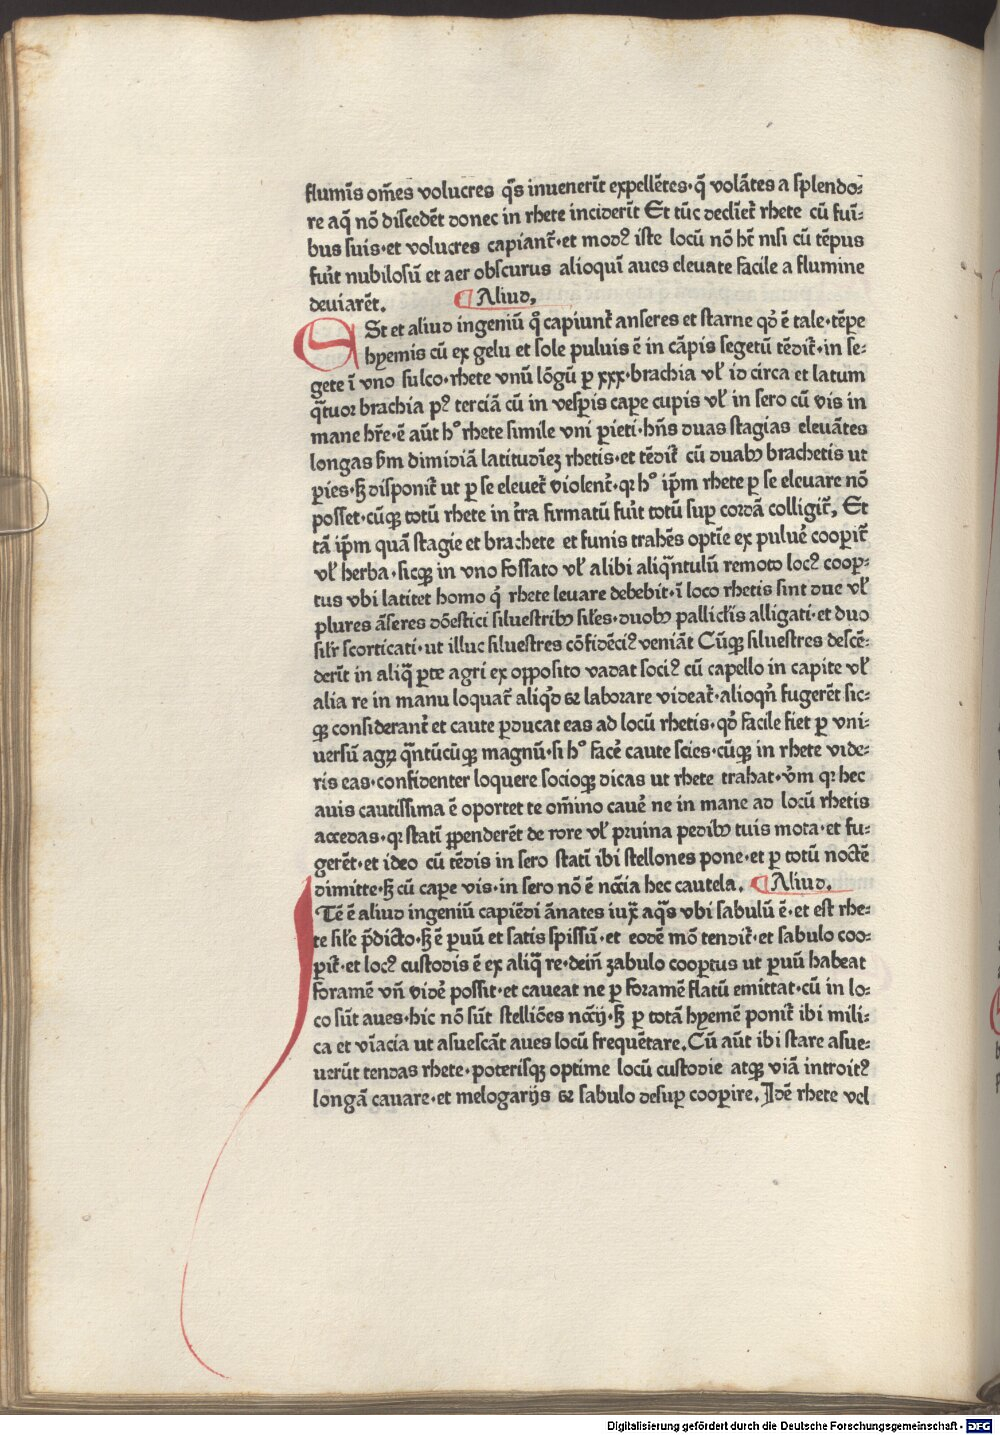 flumīs om̄es volucres q̄s inuenerīt expellētes·q̄ volātes a splendo⸗
re aq̄ nō discedēt donec in rhete inciderīt Et tūc declīet᷑ rhete cū fuī⸗
bus suis·et volucres capiant᷑·et modꝰ iste locū nō hēt nisi cū tēpus
fuīt nubilosū et aer obscurus alioquī aues eleuate facile a flumine
deviarēt. Aliud.
ESt et aliud ingeniū qͦ capiunt᷑ anseres et starne qđ ē tale·tēpe
hyemis cū ex gelu et sole puluis ē in cāpis segetū tēdit᷑·in se⸗
gete ī vno sulco·rhete vnū lōgū ꝑ xxx·brachia vl̓ id circa et latum
q̄tuor brachia pꝰ terciā cū in vesꝑis cape cupis vl̓ in sero cū vis in
mane hr̄e·ē aūt hͦ rhete simile vni ꝑieti·hn̄s duas stagias eleuātes
longas ẜm dimidiā latitudīeꝫ rhetis·et tēdit᷑ cū duabꝰ brachetis ut
ꝑies·ꝫ disponit᷑ ut ꝑ se eleuet᷑ violent᷑·qꝛ hͦ ip̄m rhete ꝑ se eleuare nō
posset·cūqꝫ totū rhete in t᷑ra firmatū fuīt totū suꝑ cordā colligit᷑, Et
tā ip̄m quā stagie et brachete et funis trahēs optīe ex puluē cooꝑit᷑
vl̓ herba·sicqꝫ in vno fossato vl̓ alibi aliq̄ntulū remoto locꝰ cooꝑ⸗
tus vbi latitet homo qͥ rhete leuare debebit·ī loco rhetis sint due vl̓
plures āseres dōestici siluestribꝰ sil̓es·duobꝰ pallicl̓is alligati·et duo
sil̓r scorticati·ut illuc siluestres cōfidēciꝰ veniāt Cūqꝫ siluestres descē⸗
derīt in aliq̄ ꝑte agri ex opposito vadat sociꝰ cū capello in capite vl̓
alia re in manu loquat᷑ aliqͩ et laborare videat᷑·alioqn̄ fugerēt sic⸗
qꝫ considerant᷑ et caute ꝑducat eas ad locū rhetis·qđ facile fiet ꝑ vni⸗
uersū agꝝ q̄ntūcūqꝫ magnū·si hͦ facē caute scies·cūqꝫ in rhete vide⸗
ris eas·confidenter loquere socioqꝫ dicas ut rhete trahat·vꝝ qꝛ hec
auis cautissima ē oportet te om̄ino cauē ne in mane ad locū rhetis
accedas·qꝛ statī ꝓpenderēt de rore vl̓ pruina pedibꝰ tuis mota·et fu⸗
gerēt·et ideo cū tēdis in sero statī ibi stellones pone·et ꝑ totū noctē
dimitte·ꝫ cū cape vis·in sero nō ē nc̄cīa hec cautela. Aliud.
ITē ē aliud ingeniū capiēdi ānates iux̄ aq̄s vbi sabulū ē·et est rhe⸗
te sil̓e p̄dicto·ꝫ ē ꝑuū et satis spissū·et eodē mō tendit᷑·et sabulo coo⸗
ꝑit᷑·et locꝰ custodis ē ex aliq̄ re·dein̄ zabulo cooꝑtus ut ꝑuū habeat
foramē vn̄ vidē possit·et caueat ne ꝑ foramē flatū emittat·cū in lo⸗
co sūt aues·hic nō sūt stelliōes nc̄cīj·ꝫ ꝑ totā hyemē ponit᷑ ibi mili⸗
ca et vīacia ut asuescāt aues locū frequētare. Cū aūt ibi stare asue⸗
uerūt tendas rhete·poterisqꝫ optime locū custodie atqꝫ viā introitꝰ
longā cauare·et melogarijs et sabulo desuꝑ cooꝑire. Idē rhete vel
Digitalisierung gefördert durch die Deutsche Forschungsgemeinschaft - DFG